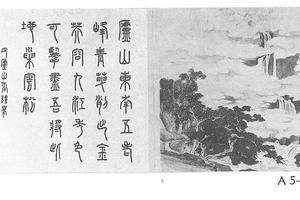 廬山東南五老
峰青天削出金
芙容九江秀色
可擥吾將此
地巢雲松
A 5-